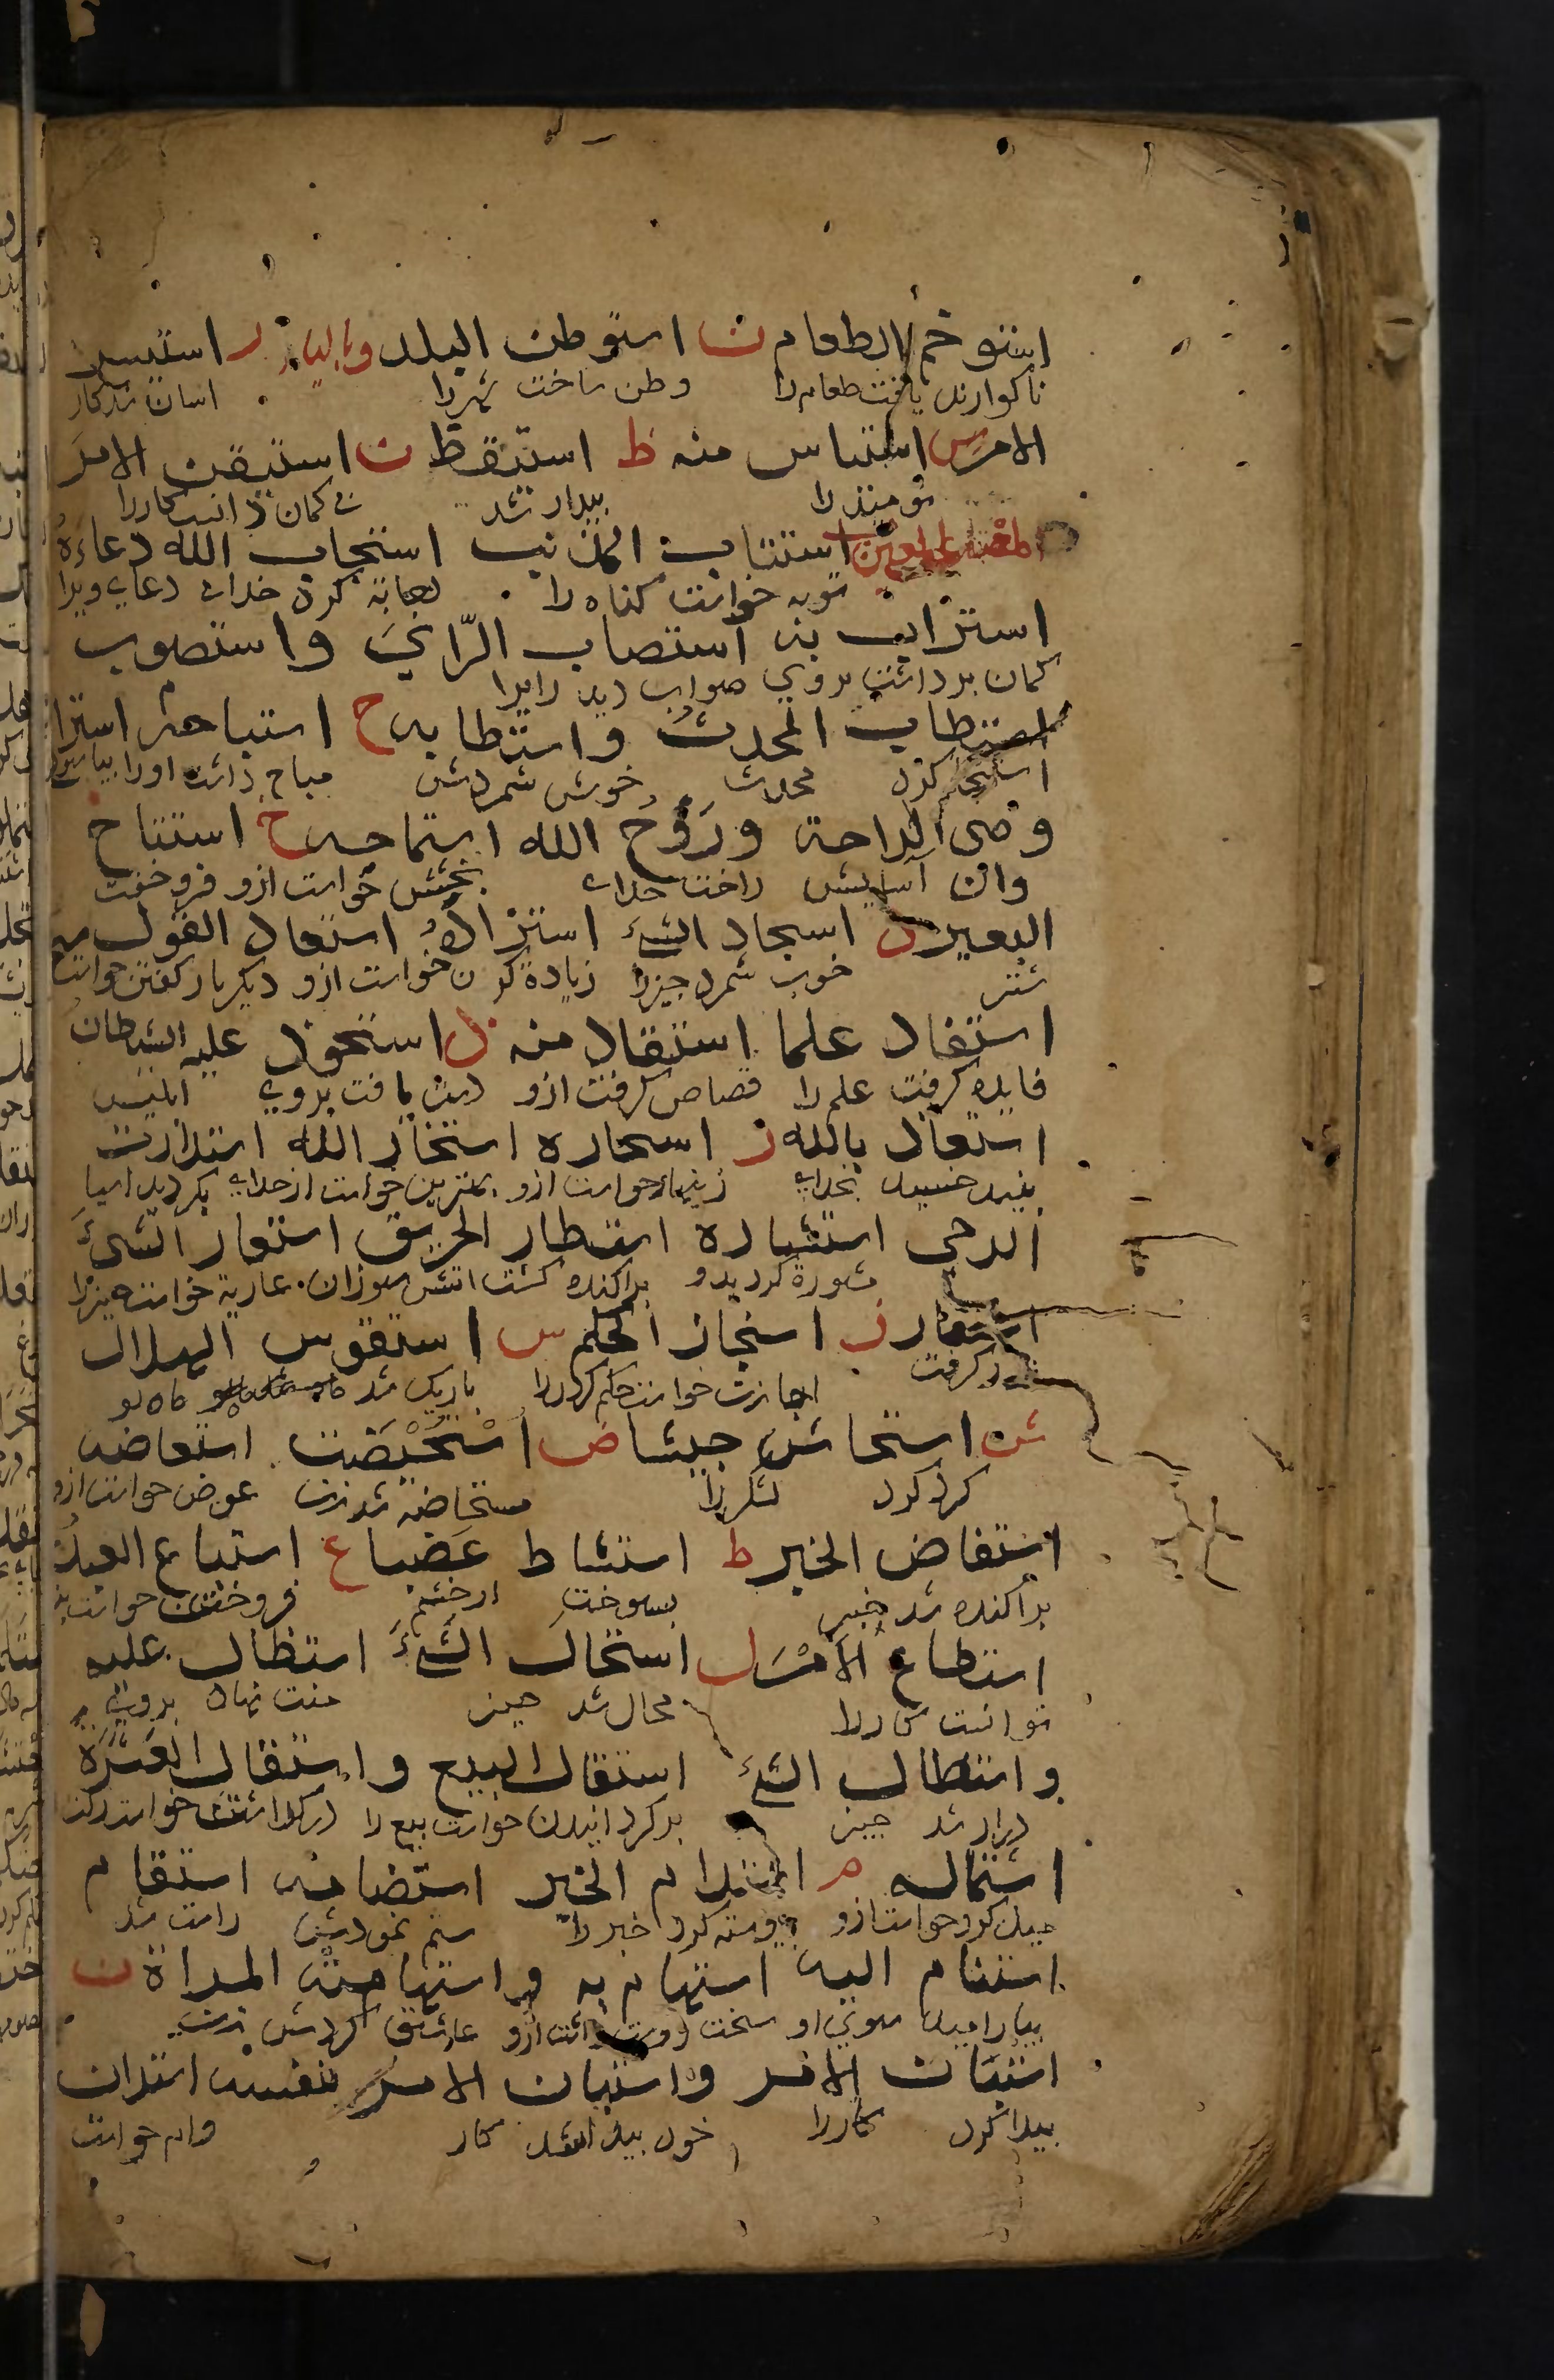 استوخم الطعام ن استوطن البلد وباليا ر استيسر
ناكوارنده يافت طعام را وطن ساخت شهر را اسان شد كار
الامر س استياس منه ظ استيقظ ن استيقن الامر
نوميد را بيدار شد بى كمان دانست كار را
المعتل العين استتاب المذنب استجاب الله دعاءه
توبه خواست كناه را اجابة كرد خداى دعاى ويرا
استراب به استصاب الرّاىَ واستصوب
كمان بد داشت بروى صواب ديد رايرا
استطاب المحدث واستطابه ح استباحه استرا
استنجا كرد محدث خوش شمردش مباح داشت اورا
وحى الراحة وروح الله استماحه خ استناخ
وان آسايش راحت خداى بخشش خواست ازو فرو خفت
البعير د استجاد الشئ استزاده استعاد القول منه
شتر خوب شمرد چيز را زياده كردن خواست ازو ديكر بار كفتن خواست
استفاد علما استقاد منه ذ استحوذ عليه الشيطان
فايده كرفت علم را قصاص كرفت ازو دست يافت بروى ابليس
استعاذ بالله ر استجاره استخار الله استدارت
بخداى زينهار خواست ازو بهترين خواست از خداى بكرديد اسيا
الرحى استشاره استطار الحريق استعار الشئ
مشورة كرد بدو پراكنده كشت اتش سوزان عارية خواست چيز را
ز استجاز الحكم س استقوس الهلال
كرفت اجازت خواست حكم كرد را باريك شد ماه نو
ش استحاش جيشا ض اُسْتُحِيْضَت استعاضه
كرد كرد لشكر را مستحاضة شد زن عوض خواست ازو
استفاض الخبر ط استشاط غضبا ع استباع العبد
پراكنده شد خبر بسوخت از خشم فروختن خواست
استطاع الامر ل استحال الشئ استطال عليه
توانست كار را محال شد چيز منت نهاد بروى
واستطال الشئ استقال البيع واستقال العثرة
دراز شد چيز بر كردانيدن خواست بيع را
استماله م استدام الخير استضامه استقام
ميل كرد خواست ازو پيوسته كرد خير را ستم نمودش راست شد
استنام اليه استهام به واستهامته المراة ن
بياراميد سوى او سخت دوست داشت ازو عاشق كردش زن
استبان الامر واستبان الامر بنفسه استدان
پيدا كرد كار را خود پيدا شد كار وام خواست